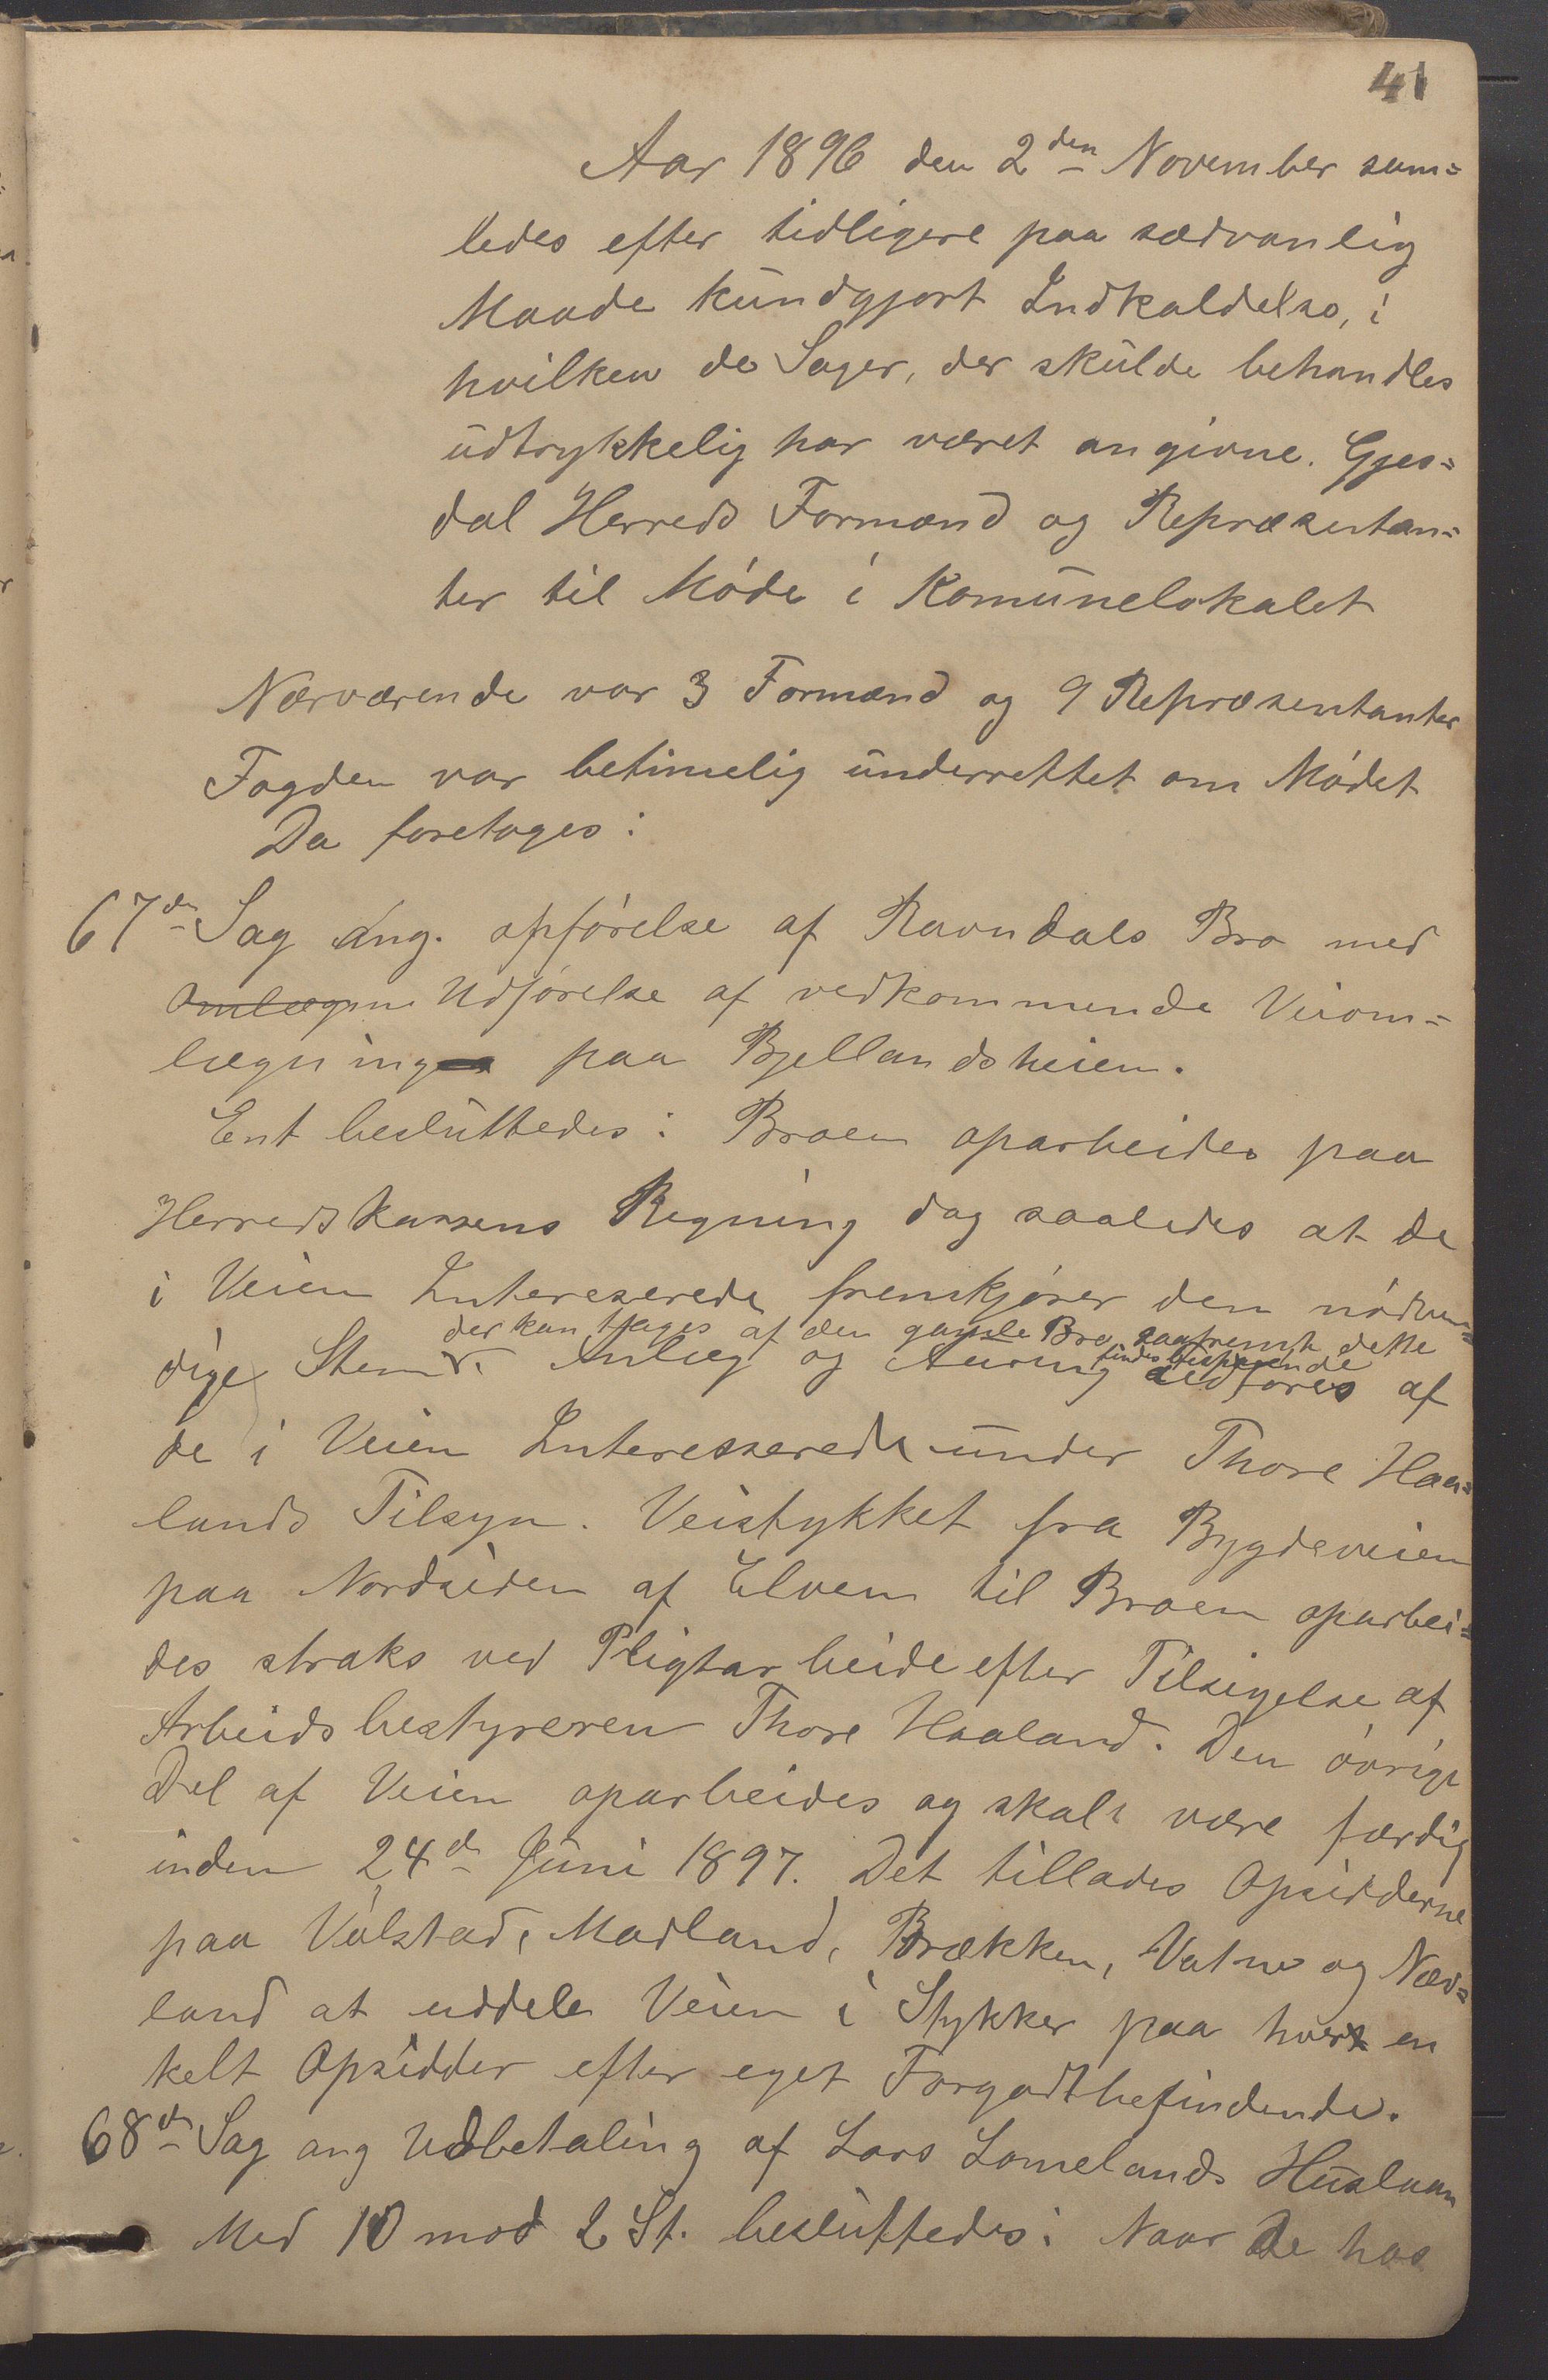 41
Aar 1896 den 2den November sam=
ledes efter tidligere paa sædvanlig
Maade kundgjort Indkaldelse, i
hvilken de Sager, der skulde behandles
udtrykkelig har været angivne. Gjes=
dal Herreds Formænd og Repræsentan=
ter til Møde i Komunelokalet
Nærværende var 3 Formænd og 9 Repræsentanter
Fogden var betimelig underrettet om Mødet
Da foretoges:
67de Sag Ang. opførelse af Ravndals Bro med
Omlægn Udførelse af vedkommende Veiom=
lægning paa Bjellandsheien.
Ent besluttedes: Broen oparbeides paa
Herredskassens Regning dog saaledes at de
i Veien Intereserede fremkjører den nødven=
der kan tages af den gamle Bro saafremt dette
findes besparende
dige Sten. Anlæg og Auring udføres af
de i Veien Interesserede under Thore Haa=
lands Tilsyn. Veistykket fra Bygdeveien
paa Nordsiden af Elven til Broen oparbei=
des straks ved Pligtarbeide efter Tilsigelse af
Arbeidsbestyreren Thore Haaland. Den øvrige
Del af Veien oparbeides og skal være færdig
inden 24de Juni 1897. Det tillades Opsidderne
paa Vølstad, Madland, Brækken, Vatne og Næv=
land at uddele Veien i Stykker paa hver en
kelt Opsidder efter eget Forgodtbefindende.
68de Sag ang Udbetaling af Lars Lomelands Huslaan
Med 10 mod 2 St. besluttedes: Naar De hos